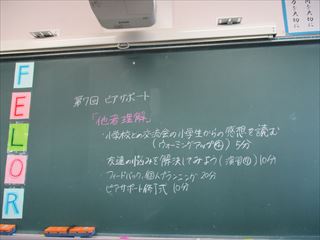 FELOR
第7回 ピアサポート
「他者理解」
・小学校との交流会の小学生からの感想を読む
(ウォーミングアップ④) 5分
友達の悩みを解決してみよう(演習⑩)10分
フィードバック,個人プランニング 20分
ピアサポート修了式 10分